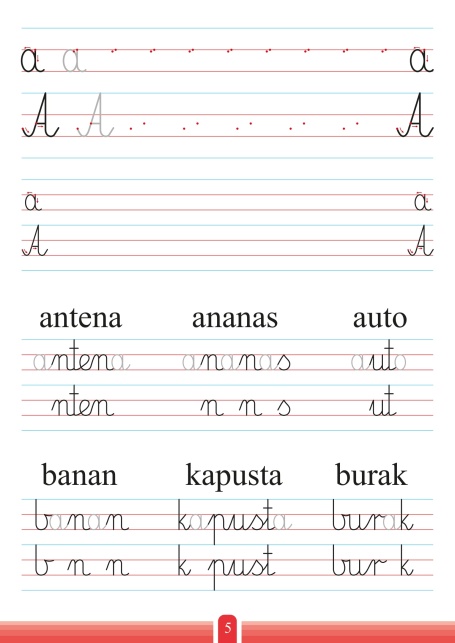 a a a
A A A
a a
A A
antena ananas auto
antena ananas auto
nten n n s ut
banan kapusta burak
banan kapusta burak
b n n k pust bur k
5